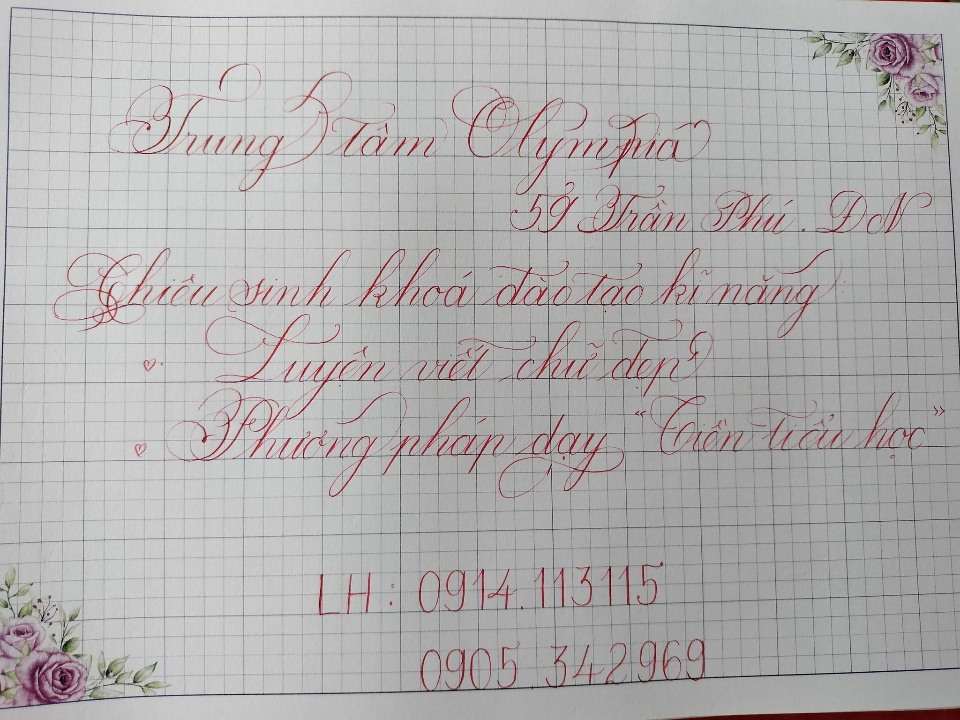 Trung tâm Olympia
59 Trần Phú. ĐN
Chiêu sinh khoá đào tạo kĩ năng
Luyện viết chữ đẹp
Phương pháp dạy "Tiền tiểu học"
LH: 0914.113115
0905 342969